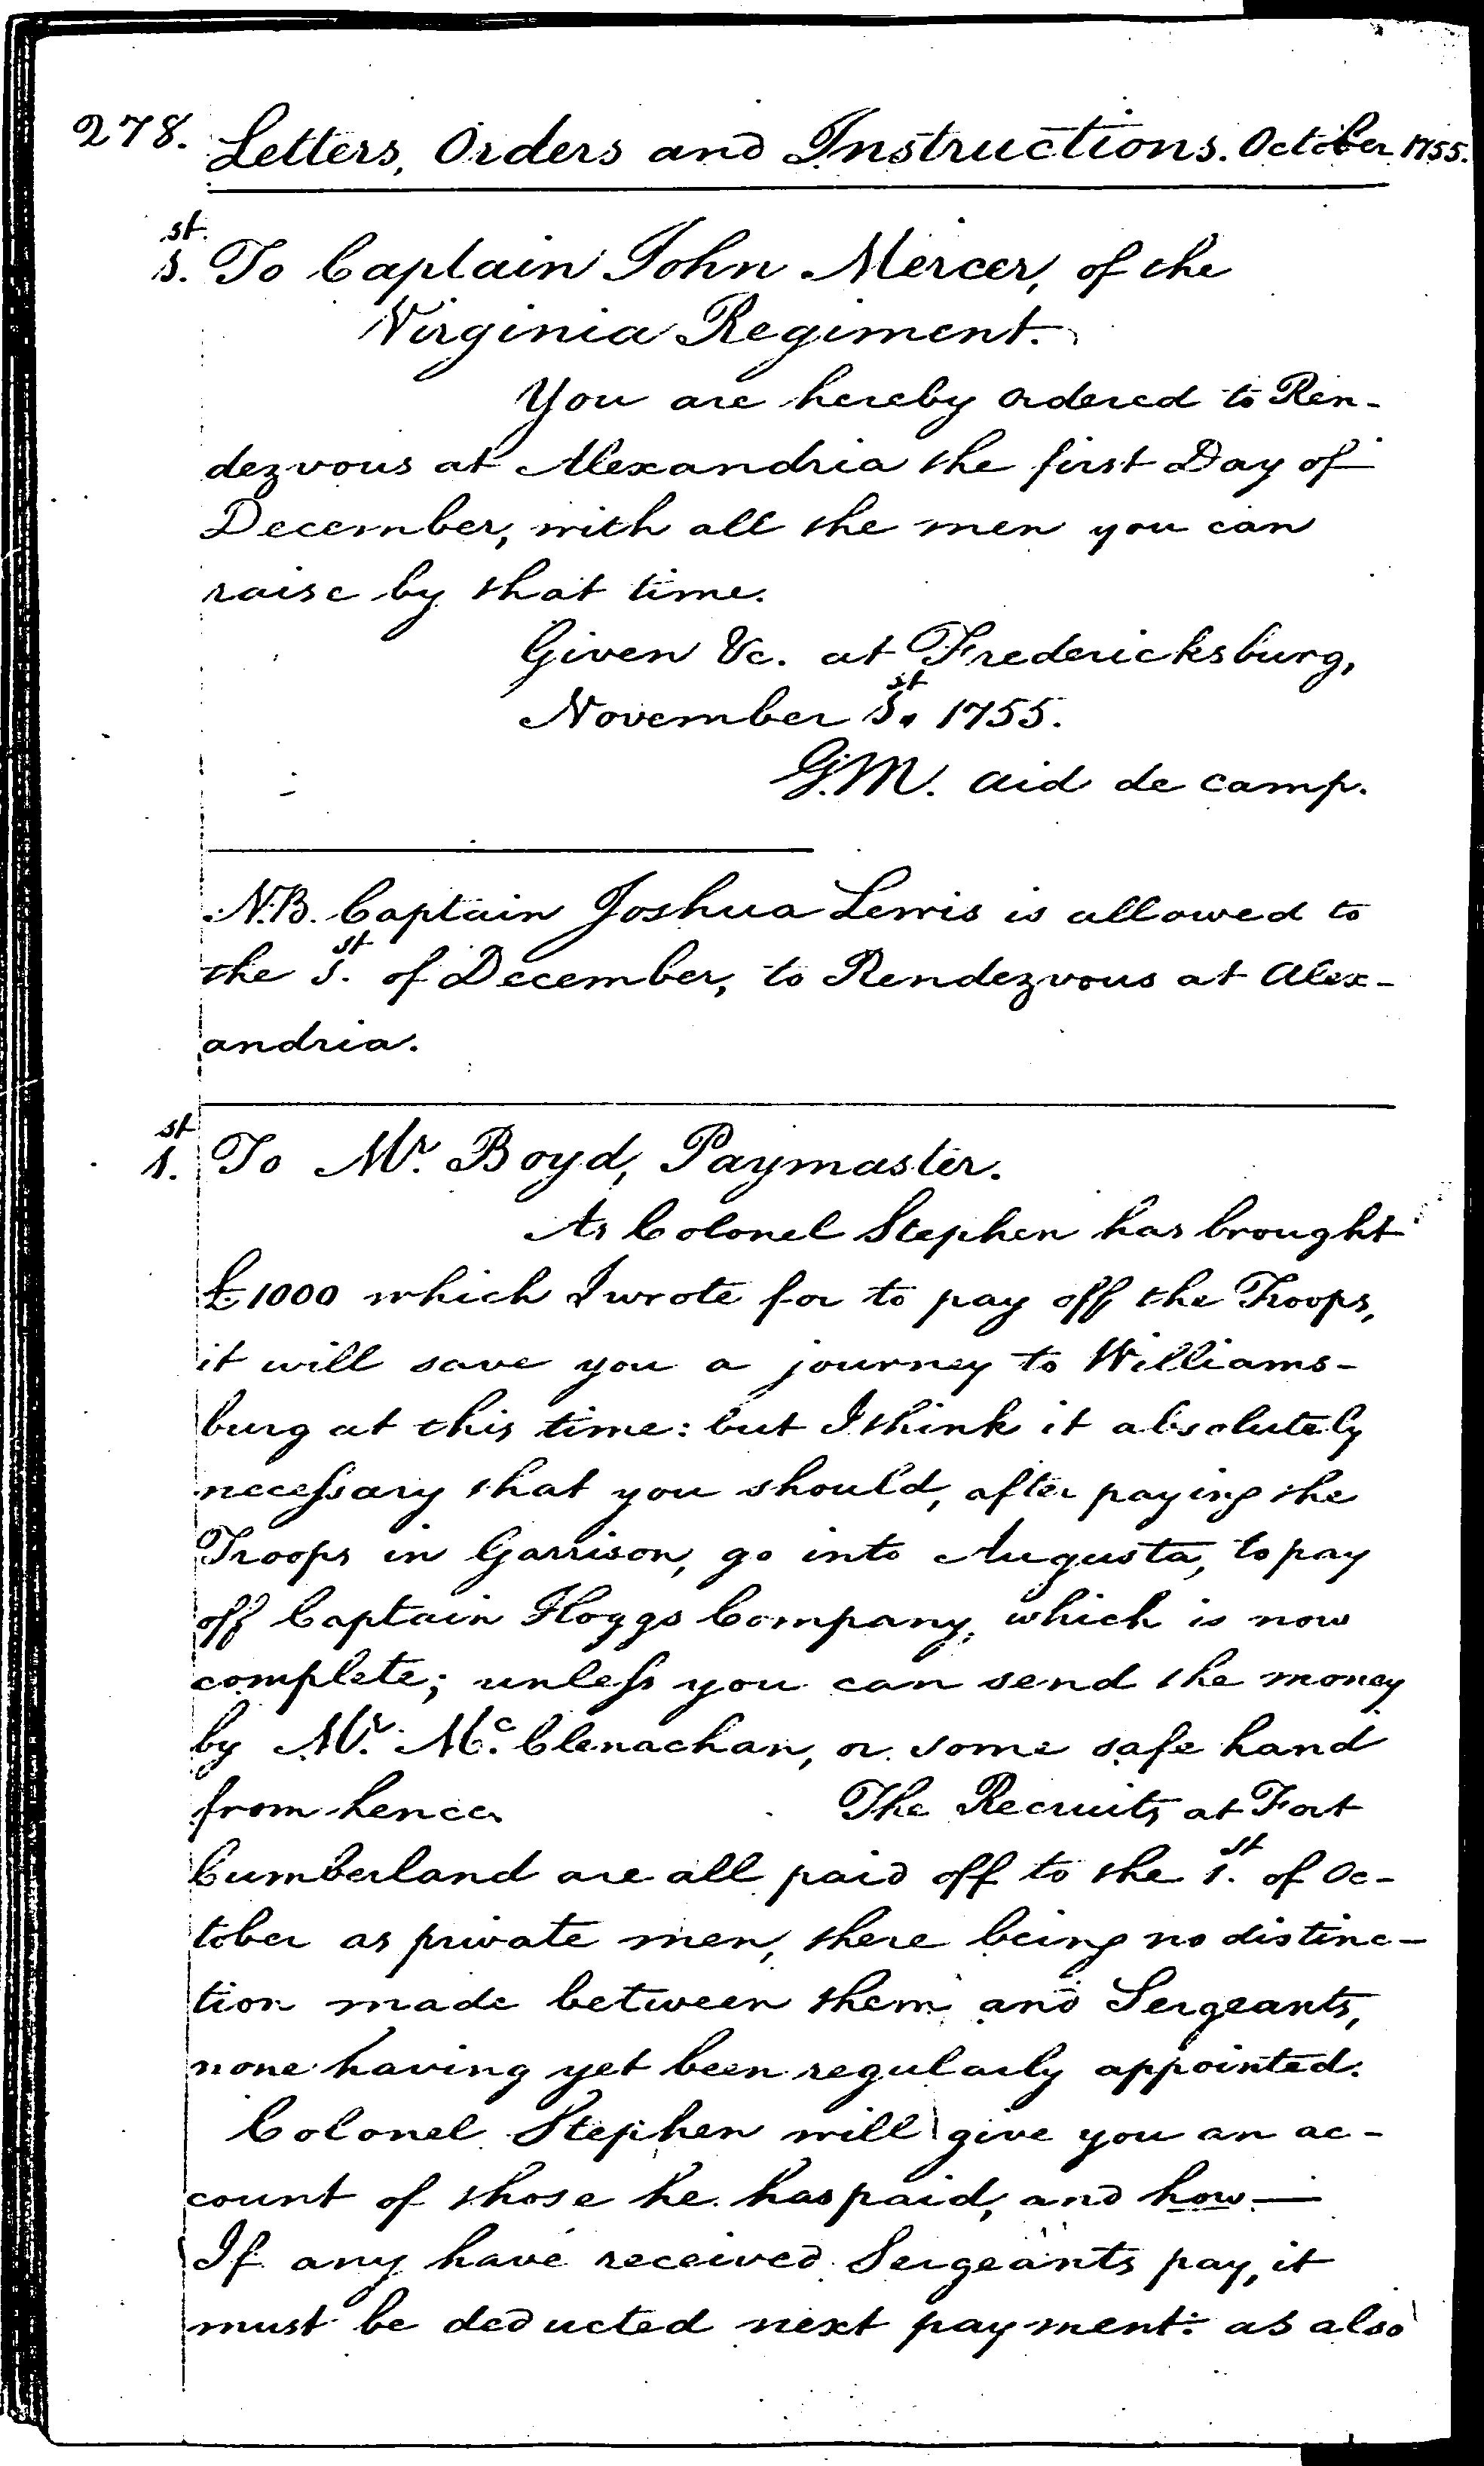 278. Letters, Orders and Instructions. October 1755.
1st. To Captain John Mercer, of the
Virginia Regiment.
You are hereby ordered to Ren-
dezvous at Alexandria the first Day of
December, with all the men you can
raise by that time.
Given &c. at Fredericksburg,
November 1st. 1755.
G.M. aid de camp.
N.B. Captain Joshua Lewis is allowed to
the 1st. of December, to Rendezvous at Alex-
andria.
1st. To Mr. Boyd, Paymaster.
As Colonel Stephen has brought
£1000 which I wrote for to pay off the Troops,
it will save you a journey to Williams-
burg at this time: but I think it absolutely
necessary that you should, after paying the
Troops in Garrison, go into Augusta, to pay
off Captain Hoggs Company, which is now
complete; unless you can send the money
by Mr. Mc.Clenachan, or some safe hand
from hence. The Recruits at Fort
Cumberland are all paid off to the 1st. of Oc-
tober as private men, there being no distinc-
tion made between them and Sergeants,
none having yet been regularly appointed.
Colonel Stephen will give you an ac-
count of those he has paid, and how—
If any have received Sergeants pay, it
must be deducted next payment: as also